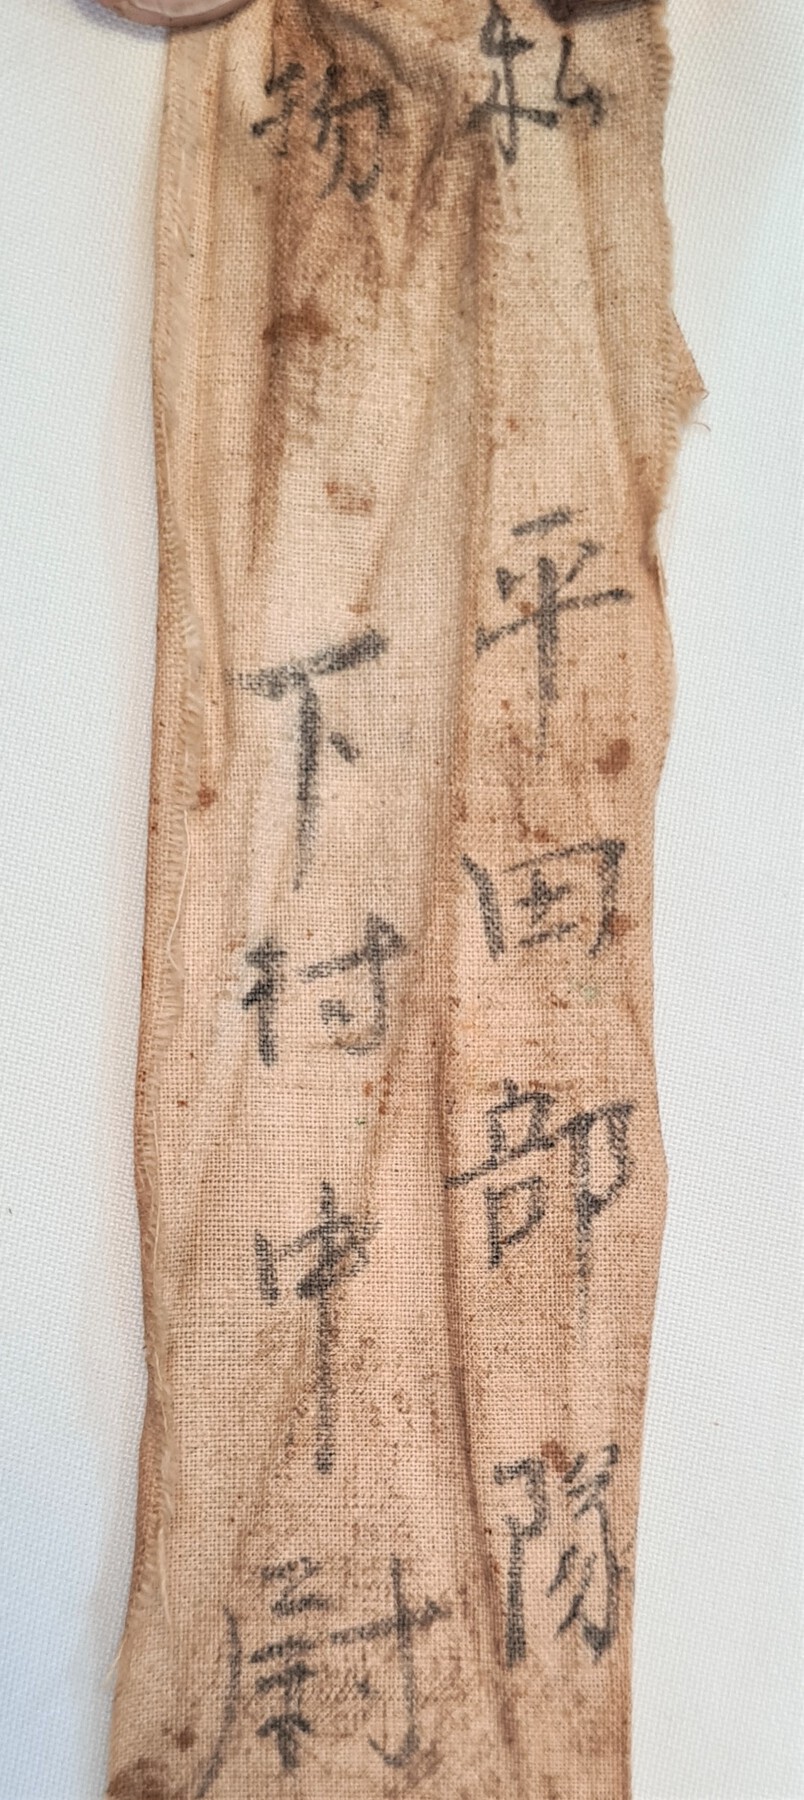 私 平田部隊
物 下村中尉